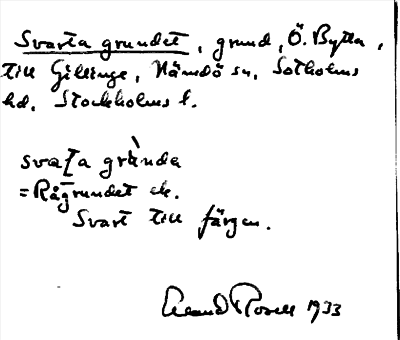 Svarta grundet, grund, Ö. Bytta,
till Gillinge, Nämdö sn, Sotholms
hd, Stockholms l.
svaṭa grùnda
= Rågrundet
Svart till färgen.
Rosell 1933